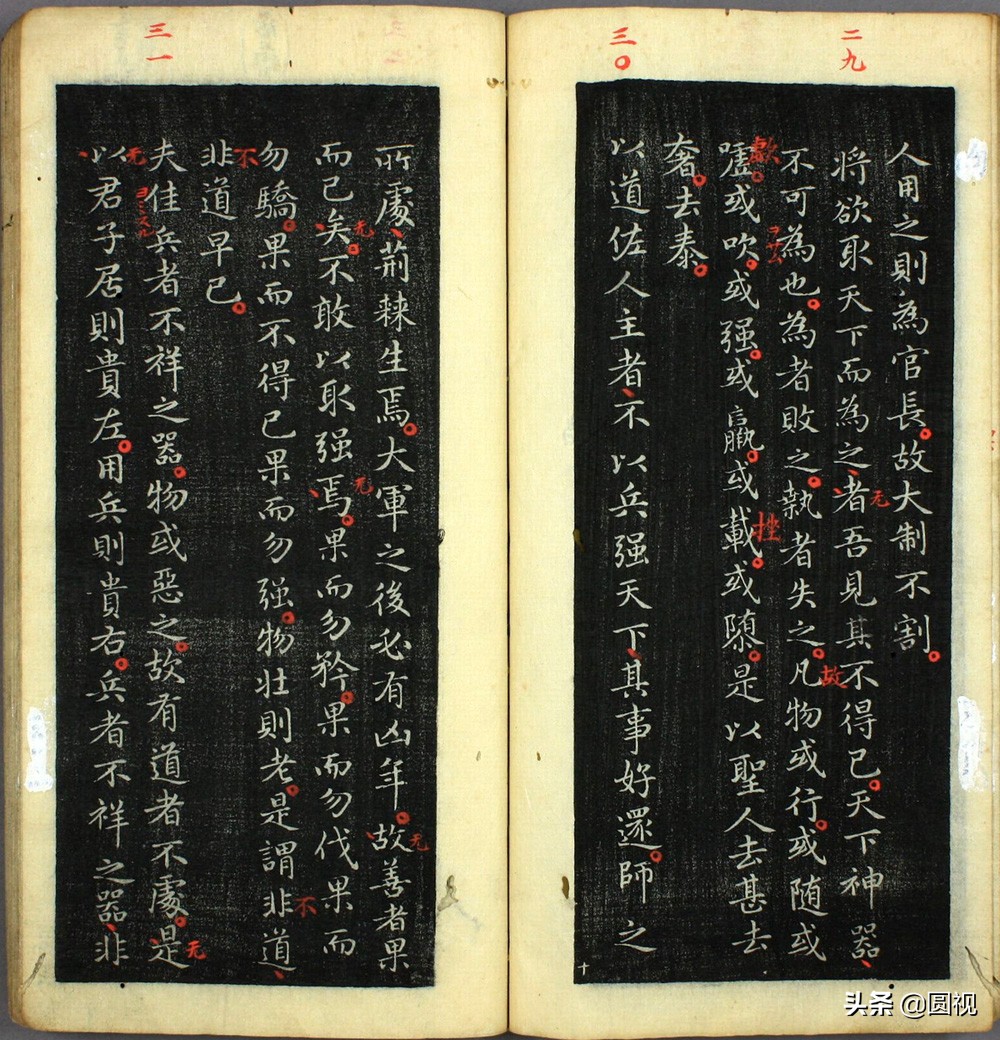 二九
人用之則為官長故大制不割
將欲取天下而為之者吾見其不得已天下神器
不可為也為者敗之執者失之凡物或行或随或
噓或吹或强或羸或載或隳是以聖人去甚去
奢去泰
三〇
以道佐人主者不以兵强天下其事好還師之
所處荊棘生焉大軍之後必有凶年故善者果
而已矣不敢以取强焉果而勿矜果而勿伐果而
勿驕果而不得已果而勿强物壯則老是謂非道
非道早已
三一
夫佳兵者不祥之器物或惡之故有道者不處是
以君子居則貴左用兵則貴右兵者不祥之器非
无
故
歔
挫
无
无
无
不
不
无
无
十
头条 @圆视